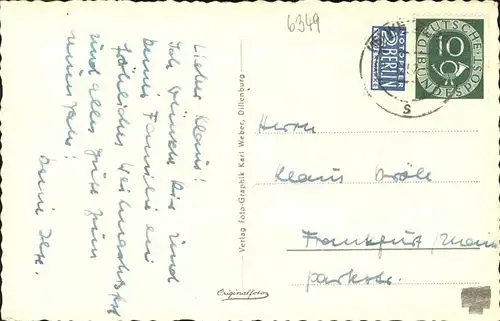 6349
Lieber Klaus!
Ich wünsche Dir und
Deiner Familie ein
fröhliches Weihnachtsfest
und alles Gute zum
neuen Jahr!
Deine
Verlag Foto-Graphik Karl Weber, Dillenburg
Originalfoto
NOTOPFER
2 BERLIN
STEUERMARKE
DEUTSCHE BUNDESPOST
10
S
Herrn
Klaus
Frankfurt/Main
Parkstr.